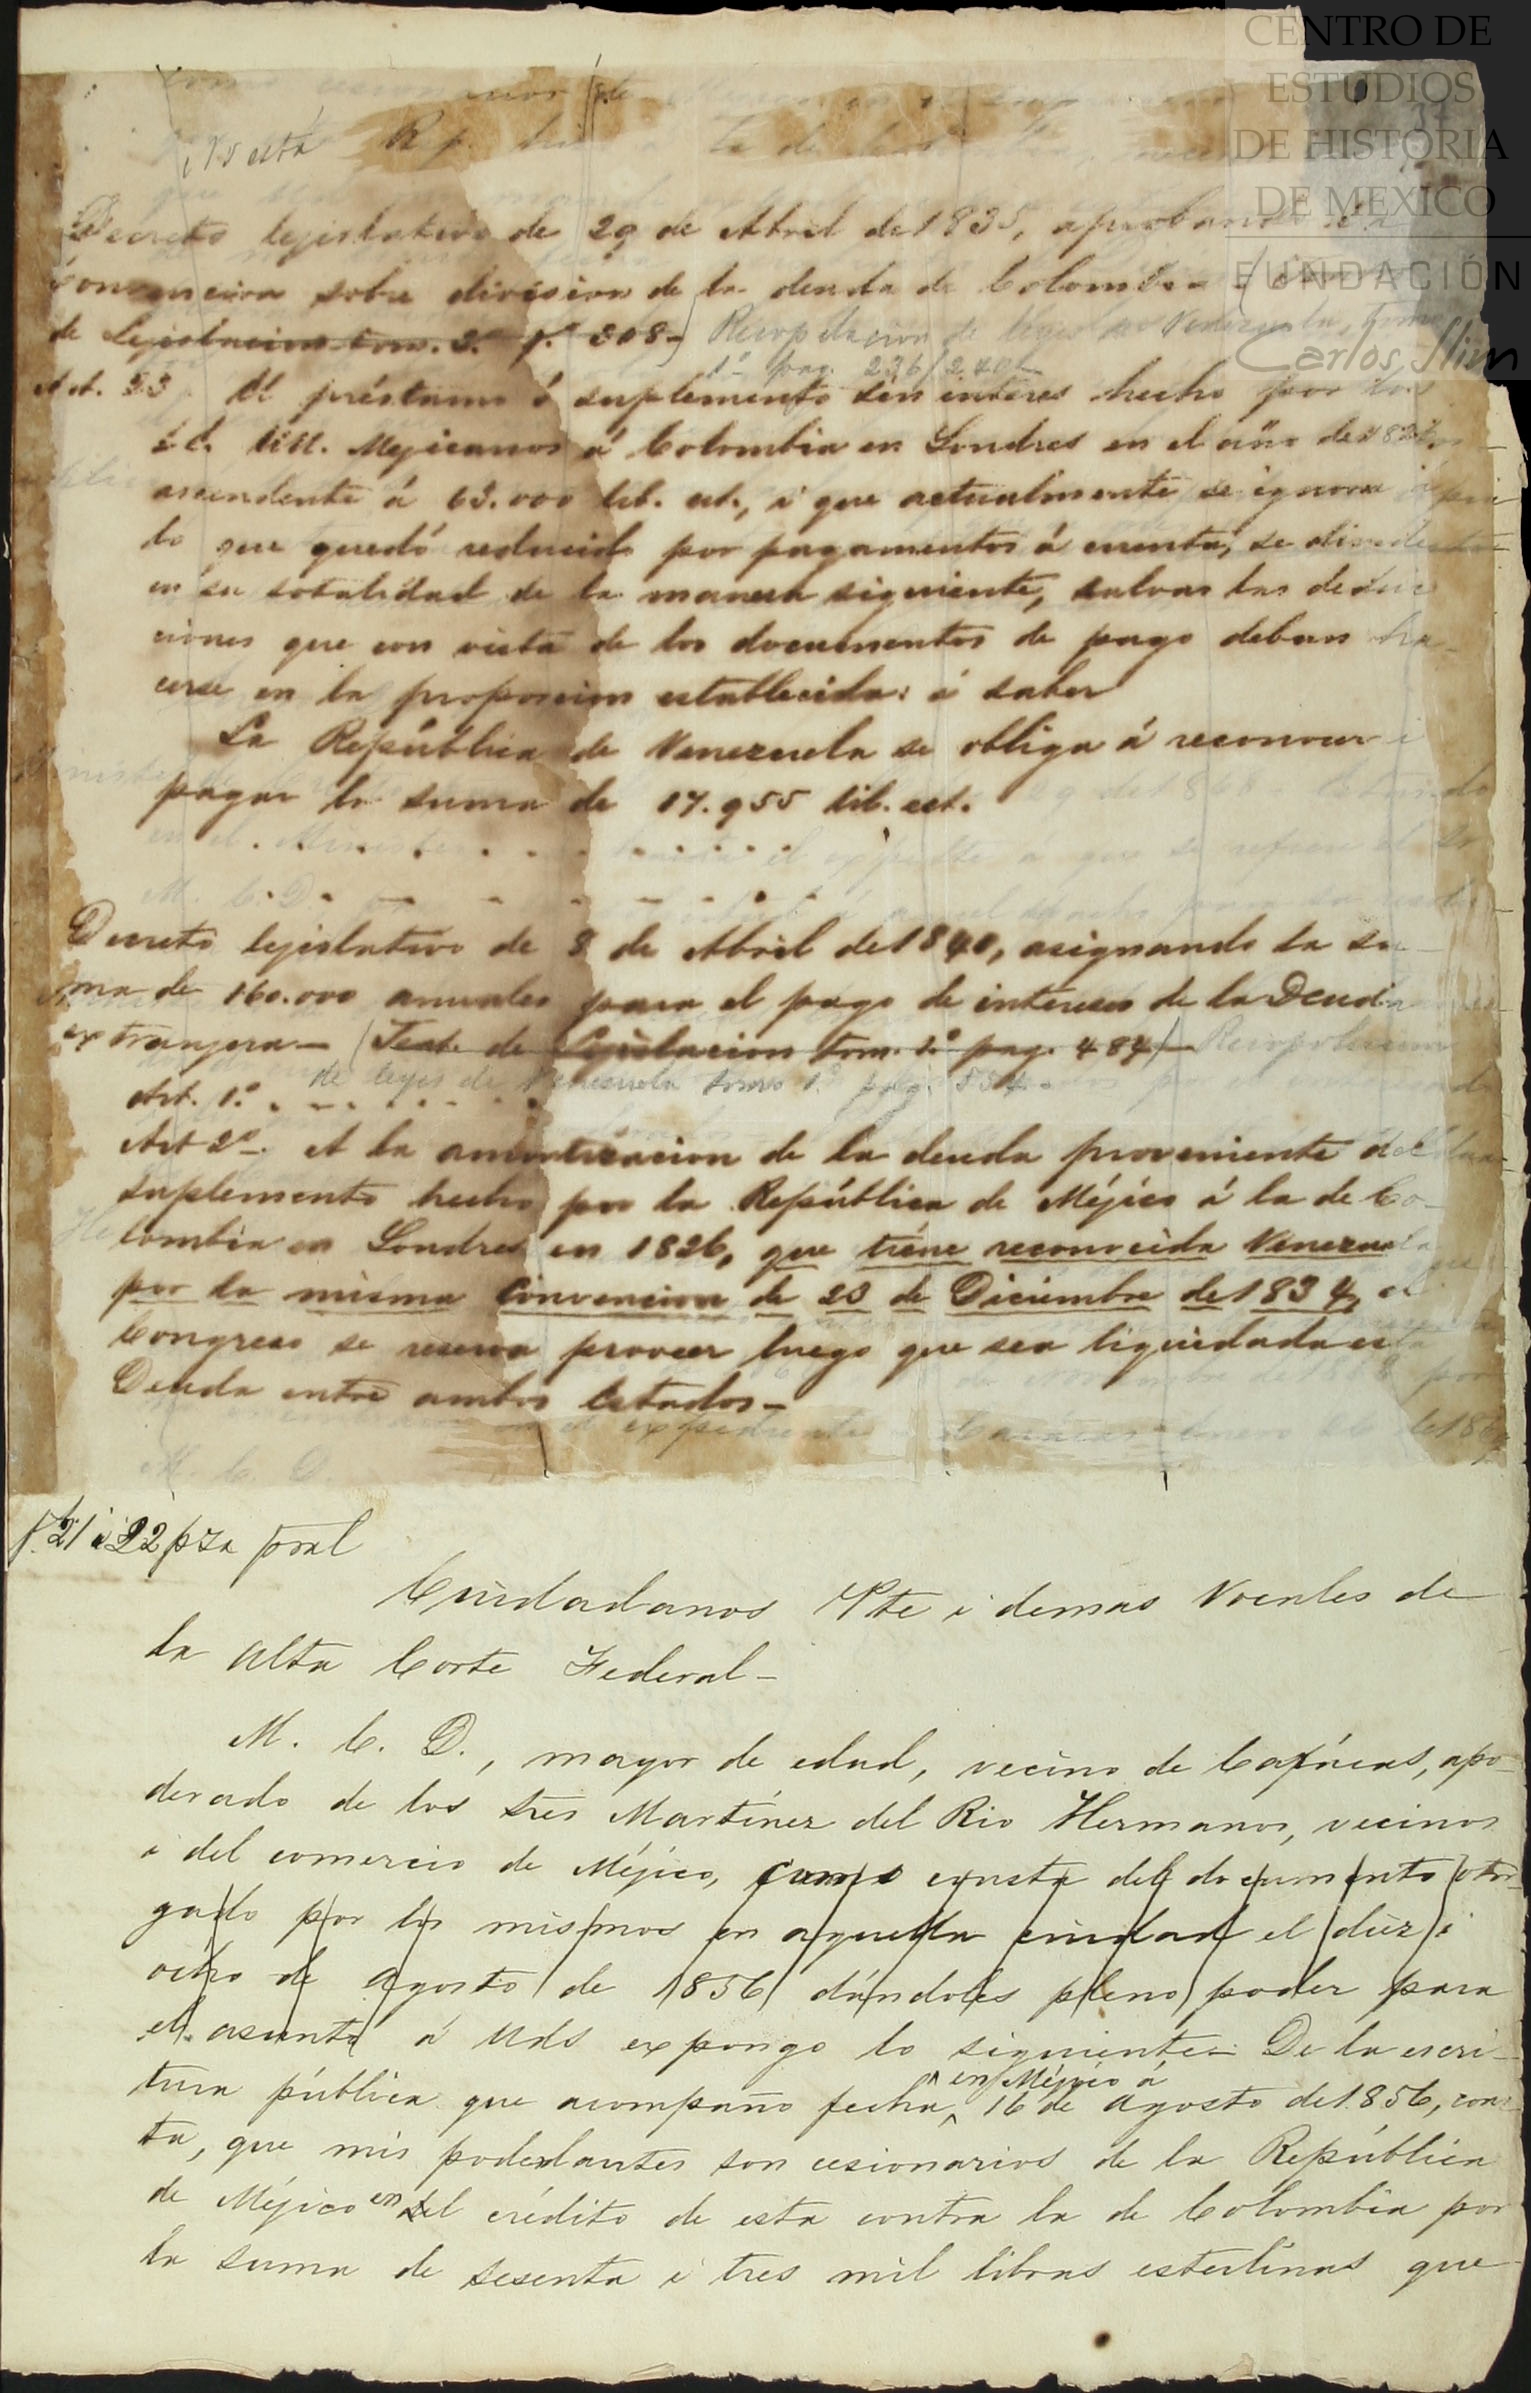 CENTRO DE
ESTUDIOS
DE HISTORIA
DE MEXICO
FUNDACIÓN
Carlos Slim
No está
Decreto lejislativo de 29 de Abril de 1835, aprobando la
Convencion sobre division de la deuda de Colombia
de Lejislacion tom. 2.º p.ª 308-) Recopilacion de leyes de Venezuela, tomo
1º pag. 236/240
Art. 23 El préstamo ó suplemento sin interes hecho por los
EE. UU. Mejicanos á Colombia en Londres en el año de 1826,
ascendente á 63.000 lib. est., i que actualmente se ignora á
lo que quedó reducido por pagamentos á cuenta, se divide
en su totalidad de la manera siguiente, salvas las deduc
ciones que con vista de los documentos de pago deban ha-
cerse en la proporcion establecida: á saber
La República de Venezuela se obliga á reconocer i
pagar la suma de 17.955 lib. est.
Decreto lejislativo de 8 de Abril de 1840, asignando la su-
ma de 160.000 anuales para el pago de intereses de la Deuda
extranjera- (Test. de Lejislacion tom. 2º pag. 484)- Recopilacion
de leyes de Venezuela tomo 1º pag. 554-
Art. 1.º
Art 2º-. A la amortizacion de la deuda proveniente del
suplemento hecho por la República de Méjico á la de Co-
lombia en Londres en 1826, que tiene reconocida Venezuela
por la misma Convencion de 23 de Diciembre de 1834, el
Congreso se reserva proveer luego que sea liquidada esta
Deuda entre ambos Estados-
f. 21 i 22 pza pral
Ciudadanos Pte i demas Vocales de
la Alta Corte Federal-
M. C. D., mayor de edad, vecino de Carácas, apo-
derado de los sres Martínez del Rio Hermanos, vecinos
i del comercio de Méjico, como consta del documento otor-
gado por los mismos en aquella ciudad el diez i
ocho de agosto de 1856 dándoles pleno poder para
el asunto á Uds expongo lo siguiente- De la escri-
en Méjico á
tura pública que acompaño fecha, 16 de agosto de 1856, cons-
ta, que mis poderdantes son cesionarios de la República
de Méjico en el crédito de esta contra la de Colombia por
la suma de sesenta i tres mil libras esterlinas que